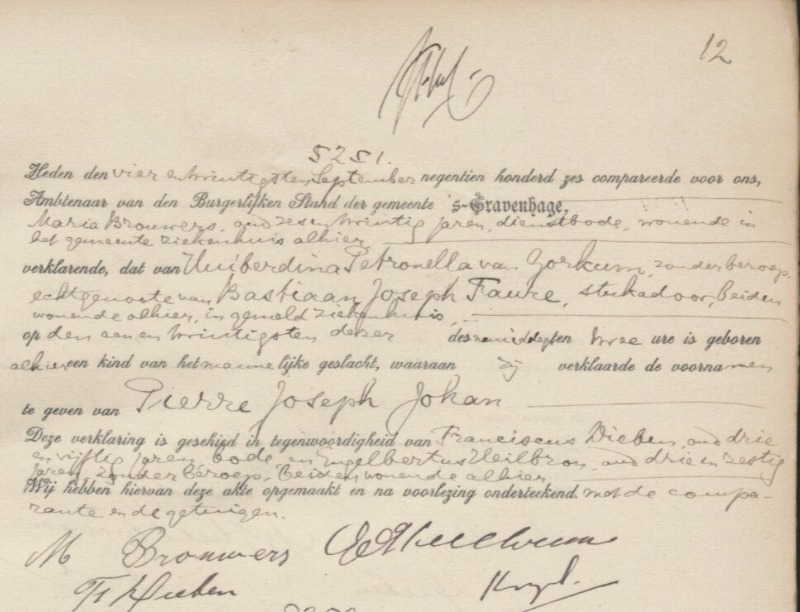 12
5251.
Heden den vier en twintigsten September negentien honderd zes compareerde voor ons,
Ambtenaar van den Burgerlijken Stand der gemeente 's-Gravenhage,
Maria Brouwers, oud zes en twintig jaren, dienstbode, wonende in
het gemeente ziekenhuis alhier,
verklarende, dat van Huiberdina Petronella van Gorkum, zonder beroep,
echtgenoote van Bastiaan Joseph Faure, stukadoor, beiden
wonende alhier, in gemeld ziekenhuis,
op den een en twintigsten dezer des namiddags ten twee ure is geboren
alhier een kind van het mannelijke geslacht, waaraan zij verklaarde de voornamen
te geven van Pierre Joseph Johan
Deze verklaring is geschied in tegenwoordigheid van Franciscus Dieben, oud drie
en vijftig jaren, bode, en Engelbertus Heilbron, oud drie en zestig
jaren, zonder beroep, Beiden wonende alhier
Wij hebben hiervan deze akte opgemaakt en na voorlezing onderteekend. met de compa-
rante en de getuigen.
M Brouwers
Fr Dieben